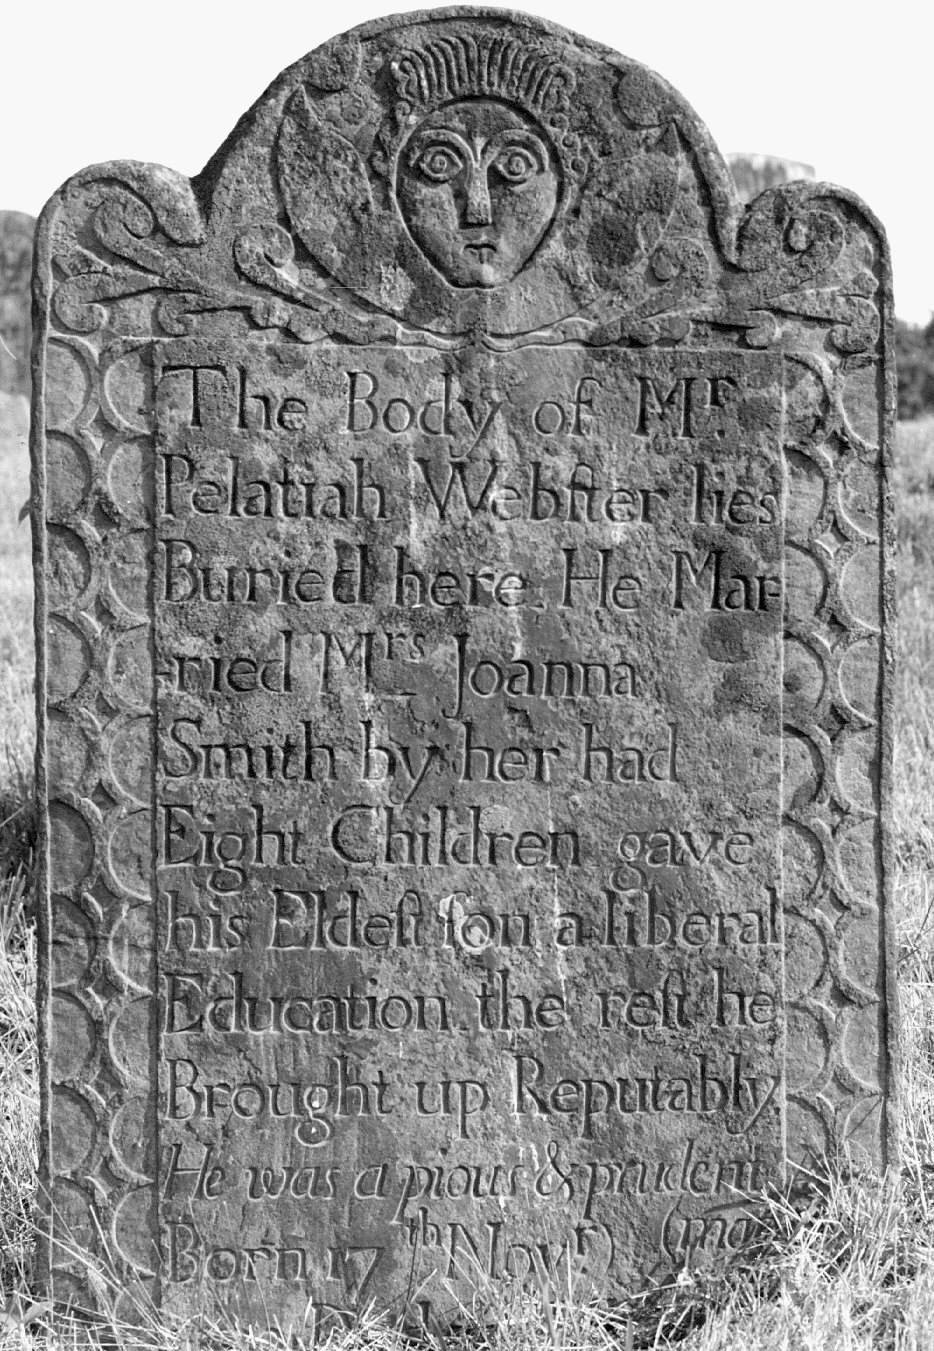 The Body of Mʳ.
Pelatiah Webſter lies
Buried here. He Mar-
-ried Mʳˢ Joanna
Smith by her had
Eight Children gave
his Eldeſt ſon a liberal
Education the reſt he
Brought up Reputably
He was a pious & prudent
Born 17ᵗʰ Novʳ